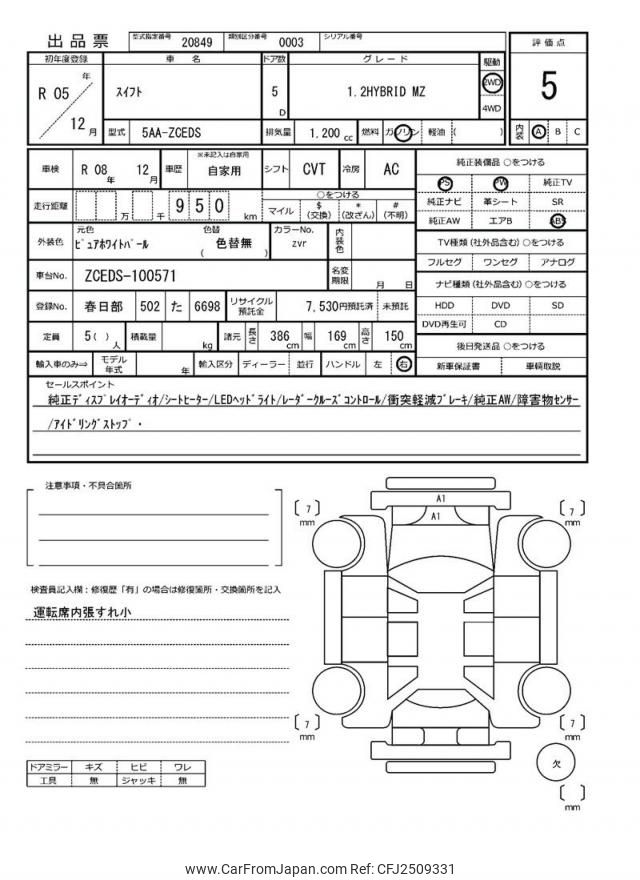 出品票
型式指定番号 20849 類別区分番号 0003 シリアル番号
初年度登録 車名 ドア数 グレード 駆動 評価点
R 05 年 12 月
スイフト 5 D 1.2HYBRID MZ 2WD 4WD 5
型式 5AA-ZCEDS 排気量 1.200 cc 燃料 ガソリン 軽油 ( ) 内装 A B C
車検 R 08 年 12 月 車歴 ※未記入は自家用 自家用 シフト CVT 冷房 AC
純正装備品 ○をつける
PS PW 純正TV
純正ナビ 革シート SR
純正AW エアB ABS
走行距離 万 千 9 5 0 km
○をつける
マイル $(交換) *(改ざん) #(不明)
外装色 元色 ピュアホワイトパール 色替 ( 色替無 ) カラーNo. zvr 内装色
TV種類 (社外品含む) ○をつける
フルセグ ワンセグ アナログ
車台No. ZCEDS-100571 名変期限 月 日
ナビ種類 (社外品含む) ○をつける
HDD DVD SD
DVD再生可 CD
登録No. 春日部 502 た 6698 リサイクル預託金 7,530円預託済 未預託
定員 5( )人 積載量 kg 諸元 長さ 386 cm 幅 169 cm 高さ 150 cm
後日発送品 ○をつける
新車保証書 車輌取説
輸入車のみ⇒ モデル年式 年 輸入区分 ディーラー 並行 ハンドル 左 右
セールスポイント
純正ディスプレイオーディオ/シートヒーター/LEDヘッドライト/レーダークルーズコントロール/衝突軽減ブレーキ/純正AW/障害物センサー
/アイドリングストップ・
注意事項・不具合箇所
検査員記入欄：修復歴「有」の場合は修復箇所・交換箇所を記入
運転席内張すれ小
[ 7 ] mm
A1
A1
[ 7 ] mm
[ 7 ] mm
[ 7 ] mm
欠
[ ] mm
ドアミラー キズ ヒビ ワレ
工具 無 ジャッキ 無
www.CarFromJapan.com Ref: CFJ2509331